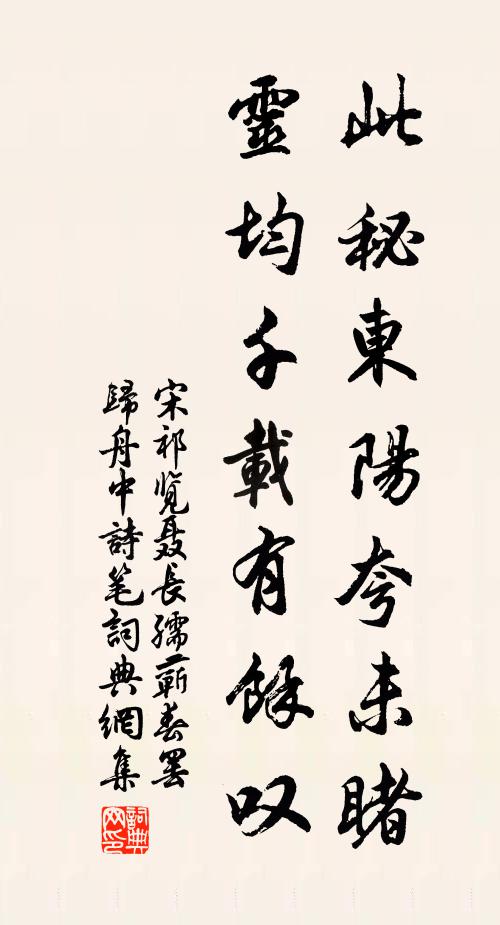 此秘東陽夸未睹
靈均千載有餘叹
宋祁覧聂長孺蕲春罢
歸舟中詩笔詞典網集
詞典网印